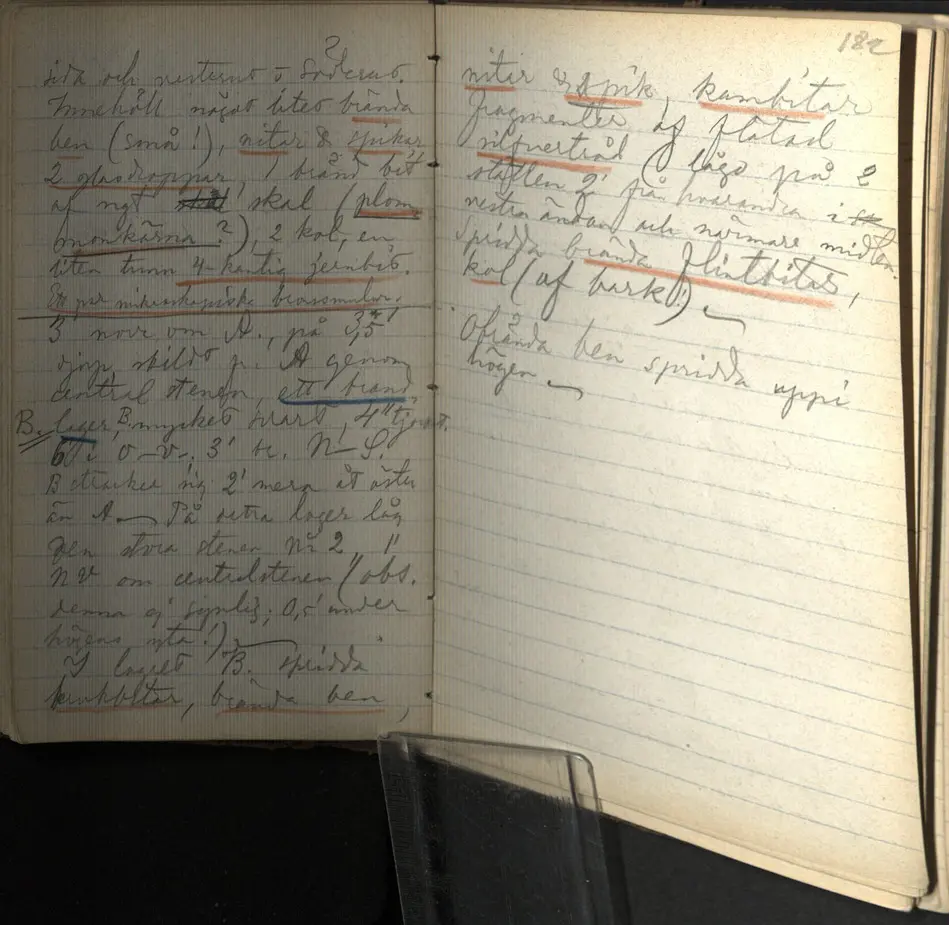 2
sida och vesterut o Söderut.
Innehöll något litet brända
ben (små!), nitar & spikar
2 glasdroppar, 1 bränd bit
af ngt skal (plom
monkärna?), 2 kol, en
liten tunn 4-kantig jernbit.
Ett par mikroskopiska bronssmulor.
3' norr om A., på 3,5'
djup skildt fr. A genom
central stenen, ett brand
B. lager, B. mycket svart, 4" tjockt.
6' i o-v-. 3' i N-S.
B sträcker sig 2' mera åt öster
än A. På detta lager låg
den stora stenen Nr 2, 1'
NV om centralstenen (obs.
denna ej synlig; 0,5' under
högens yta!).
I lagret B. spridda
krukbitar, brända ben,
182
nitar & spik, kambitar
fragmenter af flätad
silfvertråd (låg på 2
ställen 2' från hvarandra i
vestra ändan och närmare midten.
Spridda brända flintbitar,
kol (af bark!).
Obrända ben spridda uppi
högen